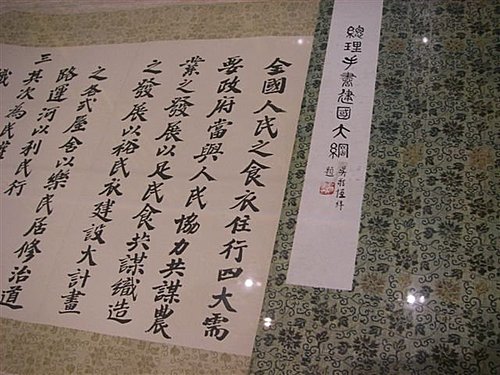 總理手書建國大綱
題
全國人民之食衣住行四大需
要政府當與人民協力共謀農
業之發展以足民食共謀織造
之發展以裕民衣建設大計畫
之各式屋舍以樂民居修治道
路運河以利民行
三其次為民權